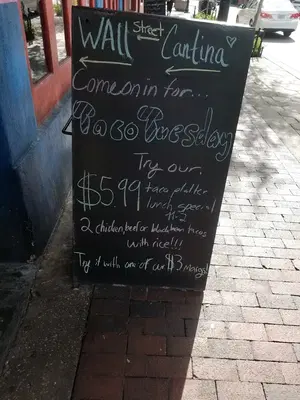 WAll Street Cantina
Come on in for...
Taco Tuesday
Try our
$5.99 taco platter
lunch special
11-2
2 chicken, beef or black bean tacos
with rice!!!
Try it with one of our $3 Margs!